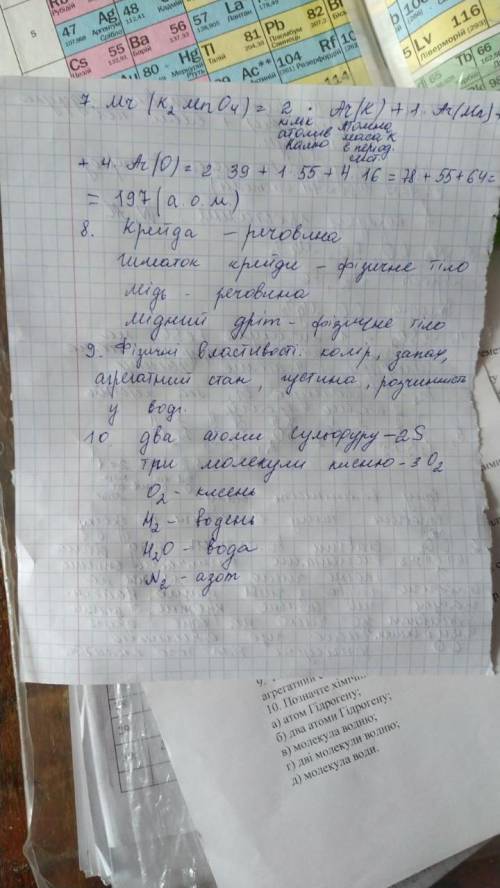 5
Рубідій
47 Ag 48
107,868
112,41
57 La
Лантан
178,49
Pb 82
Плюмбум
Свинець
Cs 55
132,91
Цезій
Ba 56
137,33
Барій
Ti 81
Талій
Au 80 Hg
Ртуть
Ac** 104 Rf
(261) Резерфордій
116
Lv
Ліверморій (293)
65 Tb 66
7. Mr (K2MnO4) = 2 · Ar(K) + 1 · Ar(Mn) +
кільк атомів Калію
Атомна маса K в період. сист.
+ 4 · Ar(O) = 2 · 39 + 1 · 55 + 4 · 16 = 78 + 55 + 64 =
= 197 (а.о.м)
8. Крейда – речовина
шматок крейди – фізичне тіло
мідь - речовина
мідний дріт – фізичне тіло
9. Фізичні властивості: колір, запах,
агрегатний стан, густина, розчинність
у воді.
10 два атоми Сульфуру – 2S
три молекули кисню – 3O2
O2 – кисень
H2 – водень
H2O – вода
N2 – азот
9.
агрегатний
10. Позначте хімічн
а) атом Гідрогену;
б) два атоми Гідрогену;
в) молекула водню;
г) дві молекули водню;
д) молекула води.